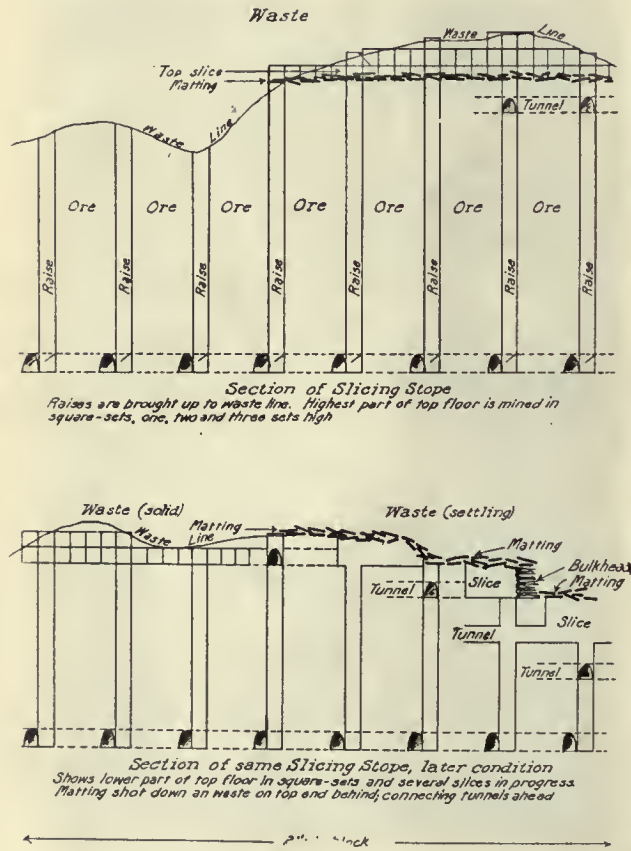 Waste
Waste Line
Top slice
Matting
Tunnel
Waste Line
Ore Ore Ore Ore Ore Ore Ore
Raise Raise Raise Raise Raise Raise Raise Raise
Section of Slicing Stope
Raises are brought up to waste line. Highest part of top floor is mined in
square-sets, one, two and three sets high
Waste (solid) Waste (settling)
Matting
Waste Line
Matting
Bulkhead
Matting
Tunnel Slice
Slice
Tunnel
Tunnel
Section of same Slicing Stope, later condition
Shows lower part of top floor in square-sets and several slices in progress
Matting shot down an waste on top and behind; connecting tunnels ahead